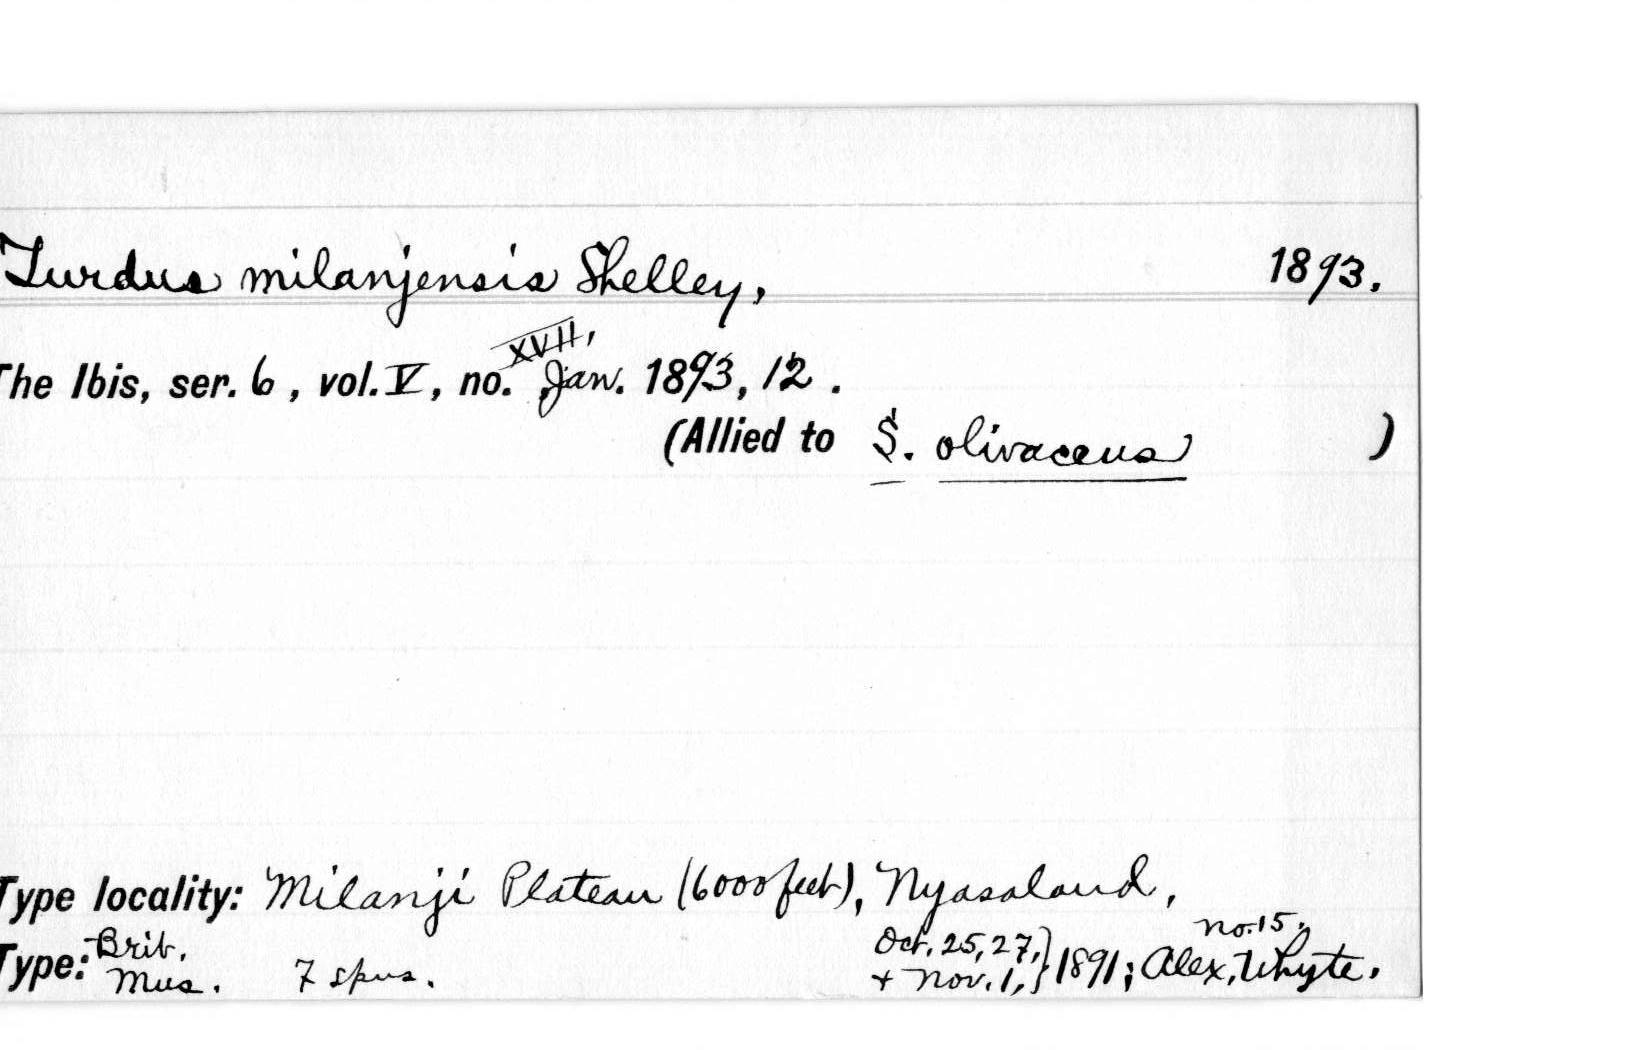 Turdus milanjensis Shelley, 1893.
The Ibis, ser. 6, vol. V, no. XVII, Jan. 1893, 12.
(Allied to S. olivaceus )
Type locality: Milanji Plateau (6000 feet), Nyasaland,
Type: Brit. Mus. 7 spns. Oct. 25, 27, & Nov. 1, } 1891; no. 15, Alex. Whyte.